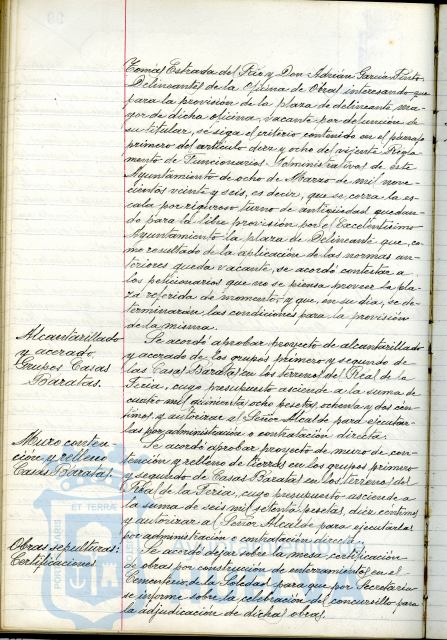 Tomás Estrada del Rio y Don Adrián García Punto,
Delineantes de la Oficina de Obras interesando que
para la provisión de la plaza de delineante ma-
yor de dicha oficina, vacante por defunción de
su titular, se siga el criterio contenido en el párrafo
primero del artículo diez y ocho del vigente Regla-
mento de Funcionarios Administrativos de este
Ayuntamiento de ocho de Marzo de mil nove-
cientos veinte y seis, es decir, que se corra la es-
cala por riguroso turno de antigüedad quedan-
do para la libre provisión por el Excelentísimo
Ayuntamiento la plaza de Delineante que, co-
mo resultado de la aplicación de las normas an-
teriores queda vacante, se acordó contestar a
los peticionarios que no se piensa proveer la pla-
za referida de momento y que, en su dia, se de-
terminarán las condiciones para la provisión
de la misma.
Alcantarillado
y acerado,
Grupos Casas
Baratas.
Se acordó aprobar proyecto de alcantarillado
y acerado de los grupos primero y segundo de
las Casas Baratas en los terrenos del Real de la
Feria, cuyo presupuesto asciende a la suma de
cuatro mil quinientas ocho pesetas, ochenta y dos cen-
timos y autorizar al Señor Alcalde para ejecutar-
las por administración o contratación directa.
Muro conten-
ción y relleno
Casas Baratas.
Se acordó aprobar proyecto de muro de con-
tención y relleno de tierras en los grupos primero
y segundo de Casas Baratas en los terrenos del
Real de la Feria, cuyo presupuesto asciende a
la suma de seis mil setenta pesetas, diez centimos
y autorizar al Señor Alcalde para ejecutarlas
por administración o contratación directa.
Obras sepulturas:
Certificaciones
Se acordó dejar sobre la mesa certificación
de obras por construcción de enterramientos en el
Cementerio de la Soledad para que por Secretaría
se informe sobre la celebración del concursillo para
la adjudicación de dichas obras.
ET TERRÆ